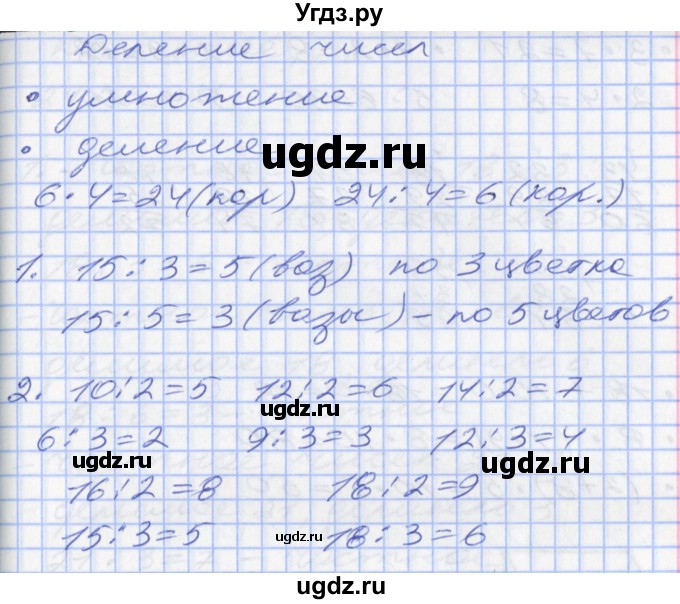 Угдз.ру
Деление чисел
• умножение
• деление
ugdz.ru
6·4=24(кор) 24:4=6(кор.)
1. 15:3=5(ваз) по 3 цветка
15:5=3(вазы)-по 5 цветов
2. 10:2=5 12:2=6 14:2=7
ugdz.ru
6:3=2 9:3=3 12:3=4
ugdz.ru ugdz.ru
16:2=8 18:2=9
15:3=5 ugdz.ru 18:3=6
ugdz.ru